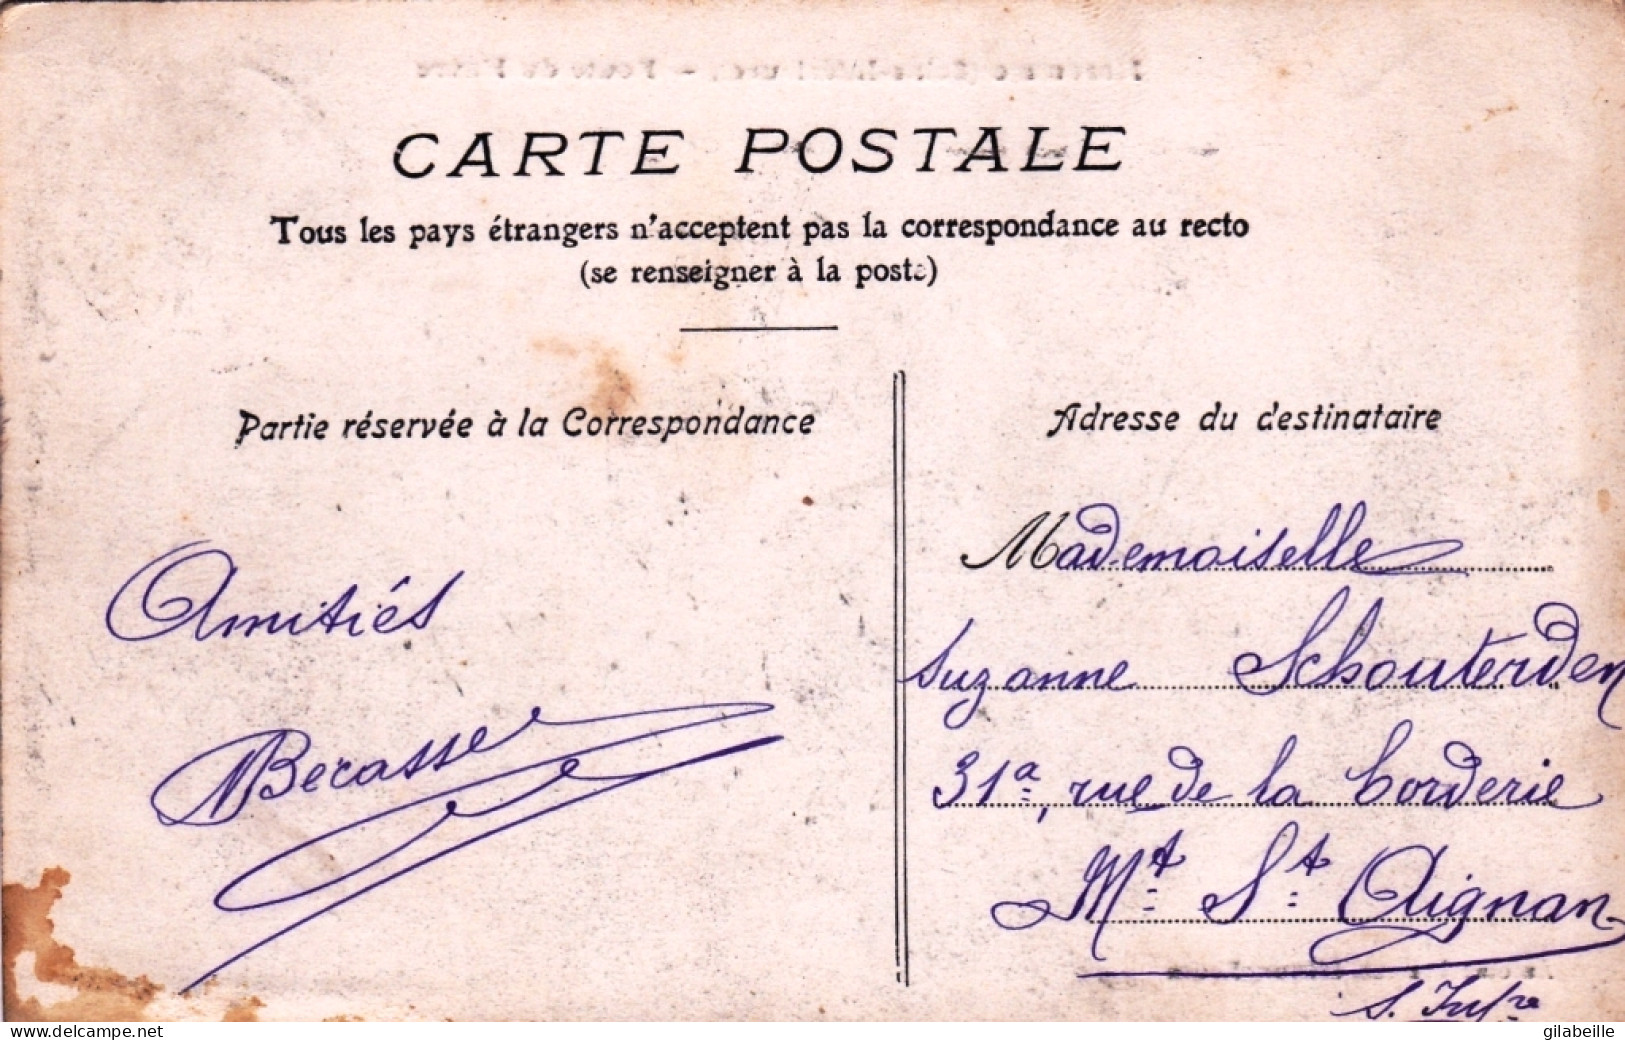 CARTE POSTALE
Tous les pays étrangers n'acceptent pas la correspondance au recto
(se renseigner à la poste)
Partie réservée à la Correspondance
Adresse du destinataire
Amitiés
Becasse
Mademoiselle
Suzanne Schouterden
31ª, rue de la Corderie
Mt St Aignan
S. Infre
delcampe.net
gilabeille